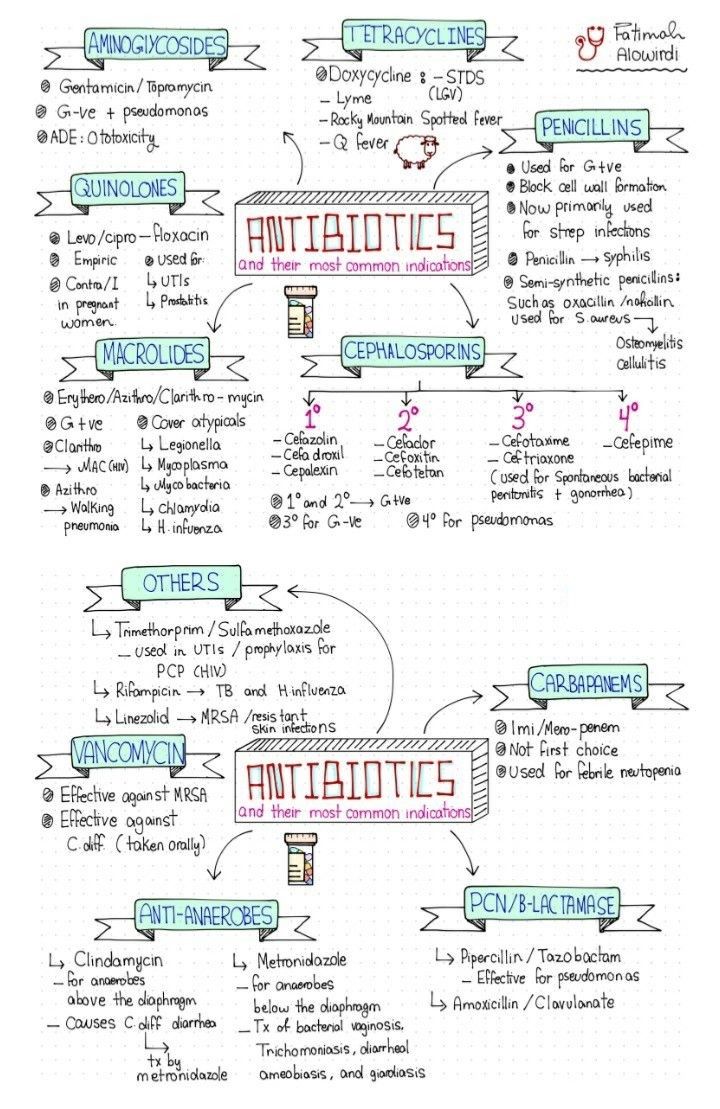 AMINOGLYCOSIDES
Gentamicin/Topramycin
G-ve + pseudomonas
ADE: Ototoxicity
TETRACYCLINES
Doxycycline : - STDS
(LGV)
- Lyme
- Rocky Mountain Spotted fever
- Q fever
Fatimah
Alowirdi
PENICILLINS
Used for G+ve
Block cell wall formation
Now primarily used
for strep infections
Penicillin → syphilis
Semi-synthetic penicillins:
Such as oxacillin/nafcillin
used for S.aureus
Osteomyelitis
cellulitis
QUINOLONES
Levo/cipro - floxacin
Empiric
Contra/I
in pregnant
women.
used for:
↳ UTIs
↳ Prostatitis
ANTIBIOTICS
and their most common indications
MACROLIDES
Erythero/Azithro/Clarithro - mycin
G+ve
Clarithro
→ MAC (HIV)
Azithro
→ Walking
pneumonia
Cover atypicals
↳ Legionella
↳ Mycoplasma
↳ Mycobacteria
↳ chlamydia
↳ H.infuenza
CEPHALOSPORINS
1°
- Cefazolin
- Cefadroxil
- Cepalexin
2°
- Cefaclor
- Cefoxitin
- Cefotetan
3°
- Cefotaxime
- Ceftriaxone
(used for Spontaneous bacterial
peritonitis + gonorrhea)
4°
- Cefepime
1° and 2° → G+ve
3° for G-ve
4° for pseudomonas
OTHERS
↳ Trimethorprim/Sulfamethoxazole
- used in UTIs / prophylaxis for
PCP (HIV)
↳ Rifampicin → TB and H.influenza
↳ Linezolid → MRSA /resistant
skin infections
CARBAPANEMS
Imi/Mero-penem
Not first choice
Used for febrile neutopenia
VANCOMYCIN
Effective against MRSA
Effective against
C.diff. (taken orally)
ANTIBIOTICS
and their most common indications
ANTI-ANAEROBES
↳ Clindamycin
- for anaerobes
above the diaphragm
- Causes C.diff diarrhea
↳ tx by
metronidazole
↳ Metronidazole
- for anaerobes
below the diaphragm
- Tx of bacterial vaginosis,
Trichomoniasis, diarrheal
ameobiasis, and giardiasis
PCN/B-LACTAMASE
↳ Pipercillin/Tazobactam
- Effective for pseudomonas
↳ Amoxicillin/Clavulanate